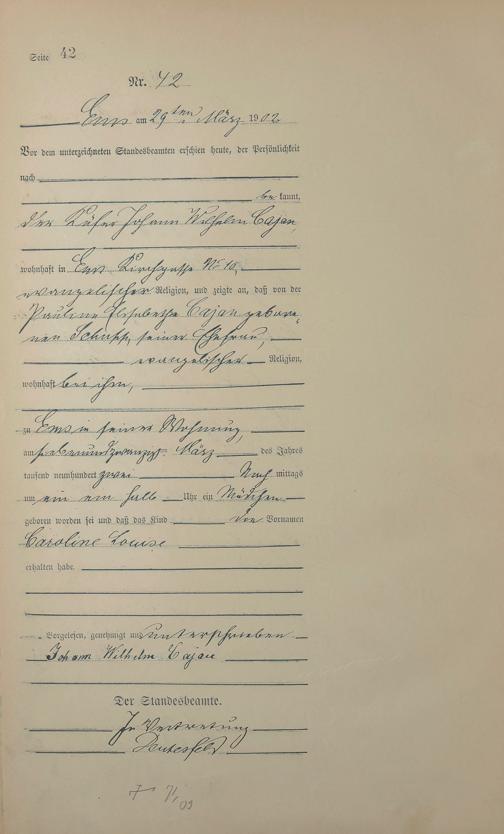 Seite 42
Nr. 42
Ems am 29ten März 1902
Vor dem unterzeichneten Standesbeamten erschien heute, der Persönlichkeit
nach
be kannt,
der Küfer Johann Wilhelm Cajan,
wohnhaft in Ems Kirchgasse No 10,
evangelischer Religion, und zeigte an, daß von der
Pauline Elisabethe Cajan gebore-
nen Schupp, seiner Ehefrau,
evangelischer Religion,
wohnhaft bei ihm,
zu Ems in seiner Wohnung,
am siebenundzwanzig. März des Jahres
tausend neunhundert zwei Nach mittags
um ein ein halb Uhr ein Mädchen
geboren worden sei und daß das Kind die Vornamen
Caroline Louise
erhalten habe.
Vorgelesen, genehmigt und unterschrieben
Johann Wilhelm Cajan
Der Standesbeamte.
In Vertretung